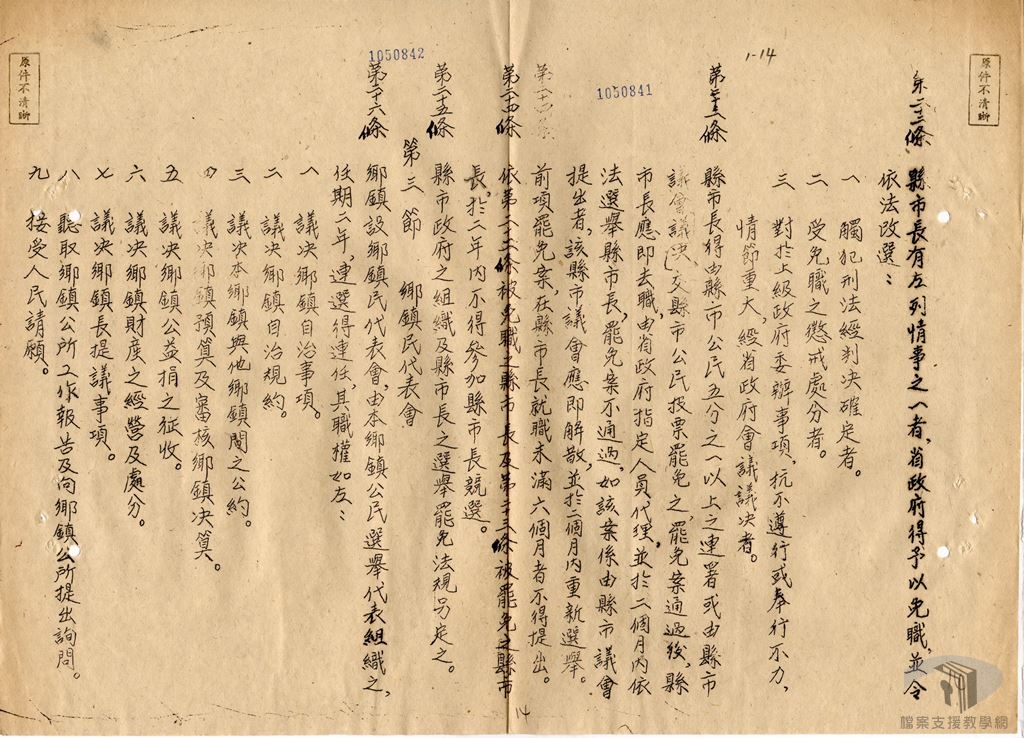 原件不清晰
1-14
第二十二條 縣市長有左列情事之一者，省政府得予以免職，並令
依法改選：
一 觸犯刑法經判決確定者。
二 受免職之懲戒處分者。
三 對於上級政府委辦事項，抗不遵行或奉行不力，
情節重大，經省政府會議議決者。
第二十三條 縣市長得由縣市公民五分之一以上之連署或由縣市
議會議決，交縣市公民投票罷免之，罷免案通過後，縣
市長應即去職，由省政府指定人員代理，並於二個月內依
法選舉縣市長，罷免案不通過，如該案係由縣市議會
提出者，該縣市議會應即解散，並於二個月內重新選舉。
前項罷免案，在縣市長就職未滿六個月者不得提出。
1050841
第二十四條
第二十四條 依第二十二條被免職之縣市長及第二十三條被罷免之縣市
長，於二年內不得參加縣市長競選。
第二十五條 縣市政府之組織及縣市長之選舉罷免法規另定之。
第三節 鄉鎮民代表會
1050842
第二十六條 鄉鎮設鄉鎮民代表會，由本鄉鎮公民選舉代表組織之，
任期二年，連選得連任，其職權如左：
一 議決鄉鎮自治事項。
二 議決鄉鎮自治規約。
三 議決本鄉鎮與他鄉鎮間之公約。
四 議決鄉鎮預算及審核鄉鎮決算。
五 議決鄉鎮公益捐之征收。
六 議決鄉鎮財產之經營及處分。
七 議決鄉鎮長提議事項。
八 聽取鄉鎮公所工作報告及向鄉鎮公所提出詢問。
九 接受人民請願。
原件不清晰
14
檔案支援教學網